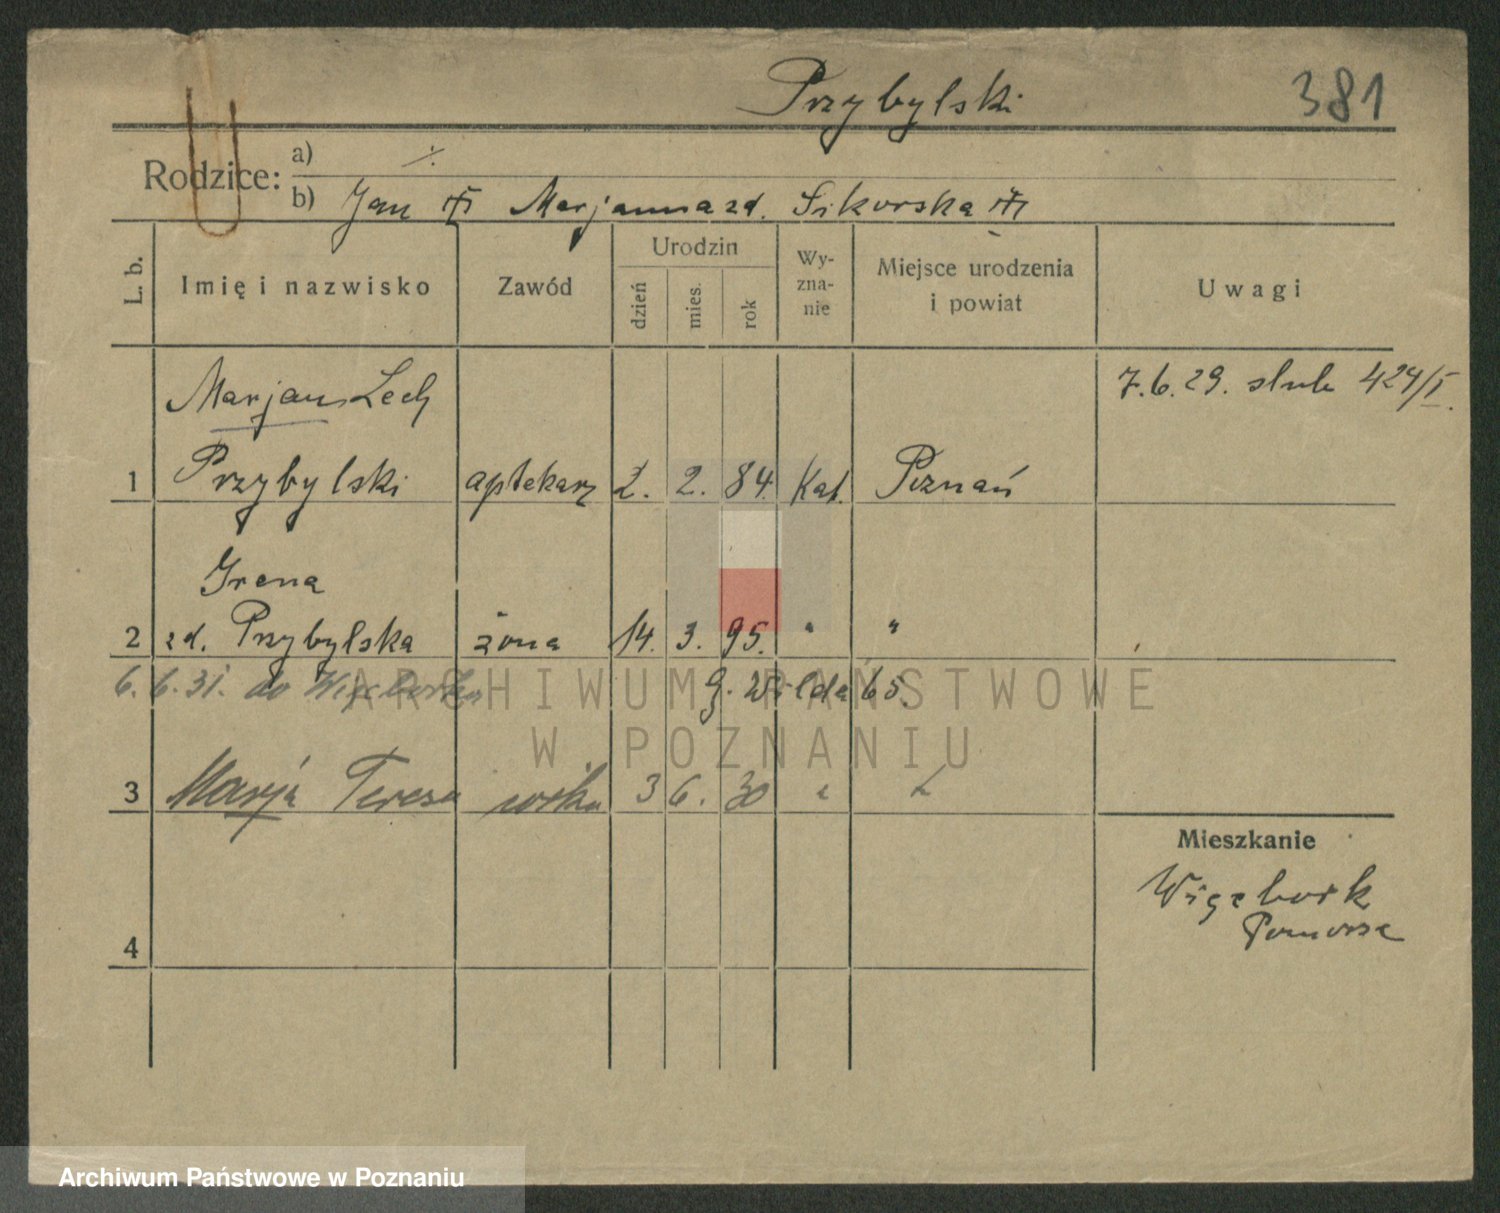 Przybylski 381
Rodzice: a) ·/.
b) Jan Marjanna zd. Sikorska
L. b. Imię i nazwisko Zawód Urodzin dzień mies. rok Wy-zna-nie Miejsce urodzenia i powiat Uwagi
Marjan Lech 7.6.29. ślub 424/I.
1 Przybylski aptekarz 2. 2. 84. Kat. Poznań
Irena
2 zd. Przybylska żona 14. 3. 95. " "
6.6.31. do Więcborka G. Wilda 65.
ARCHIWUM PAŃSTWOWE
W POZNANIU
3 Marja Teresa córka 3 6. 30 " "
Mieszkanie
Więcbork
Pomorze
4
Archiwum Państwowe w Poznaniu